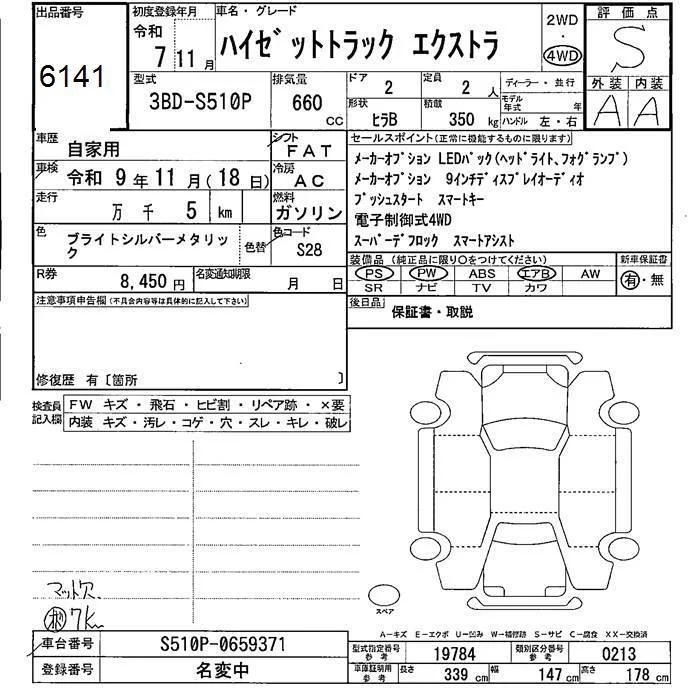 出品番号
6141
初度登録年月
令和
7 11月
車名・グレード
ハイゼットトラック エクストラ
2WD
・
4WD
評価点
S
外装 内装
A A
型式
3BD-S510P
排気量
660
CC
ドア
2
定員
2 人
形状
ヒラB
積載
350 kg
ディーラー・並行
モデル年式 年
ハンドル 左・右
車歴
自家用
シフト
FAT
車検
令和 9年11月(18日)
冷房
AC
走行
万 千 5 km
燃料
ガソリン
色
ブライトシルバーメタリック
色替
色コード
S28
R券
8,450円
名変通知期限
月 日
セールスポイント(正常に機能するものに限ります)
メーカーオプション LEDパック(ヘッドライト、フォグランプ)
メーカーオプション 9インチディスプレイオーディオ
プッシュスタート スマートキー
電子制御式4WD
スーパーデフロック スマートアシスト
装備品(純正品に限り○をつけてください)
PS PW ABS エアB AW
SR ナビ TV カワ
新車保証書
有・無
後日品
保証書・取説
注意事項申告欄(不具合内容等は具体的に記入して下さい)
修復歴 有〔箇所 〕
検査員記入欄
FW キズ・飛石・ヒビ割・リペア跡・×要
内装 キズ・汚レ・コゲ・穴・スレ・キレ・破レ
マット欠.
7k
スペア
A-キズ E-エクボ U-凹み W-補修跡 S-サビ C-腐食 XX-交換済
車台番号
S510P-0659371
登録番号
名変中
型式指定番号
参考
19784
類別区分番号
参考
0213
車庫証明用
参考
長さ
339 cm
幅
147 cm
高さ
178 cm